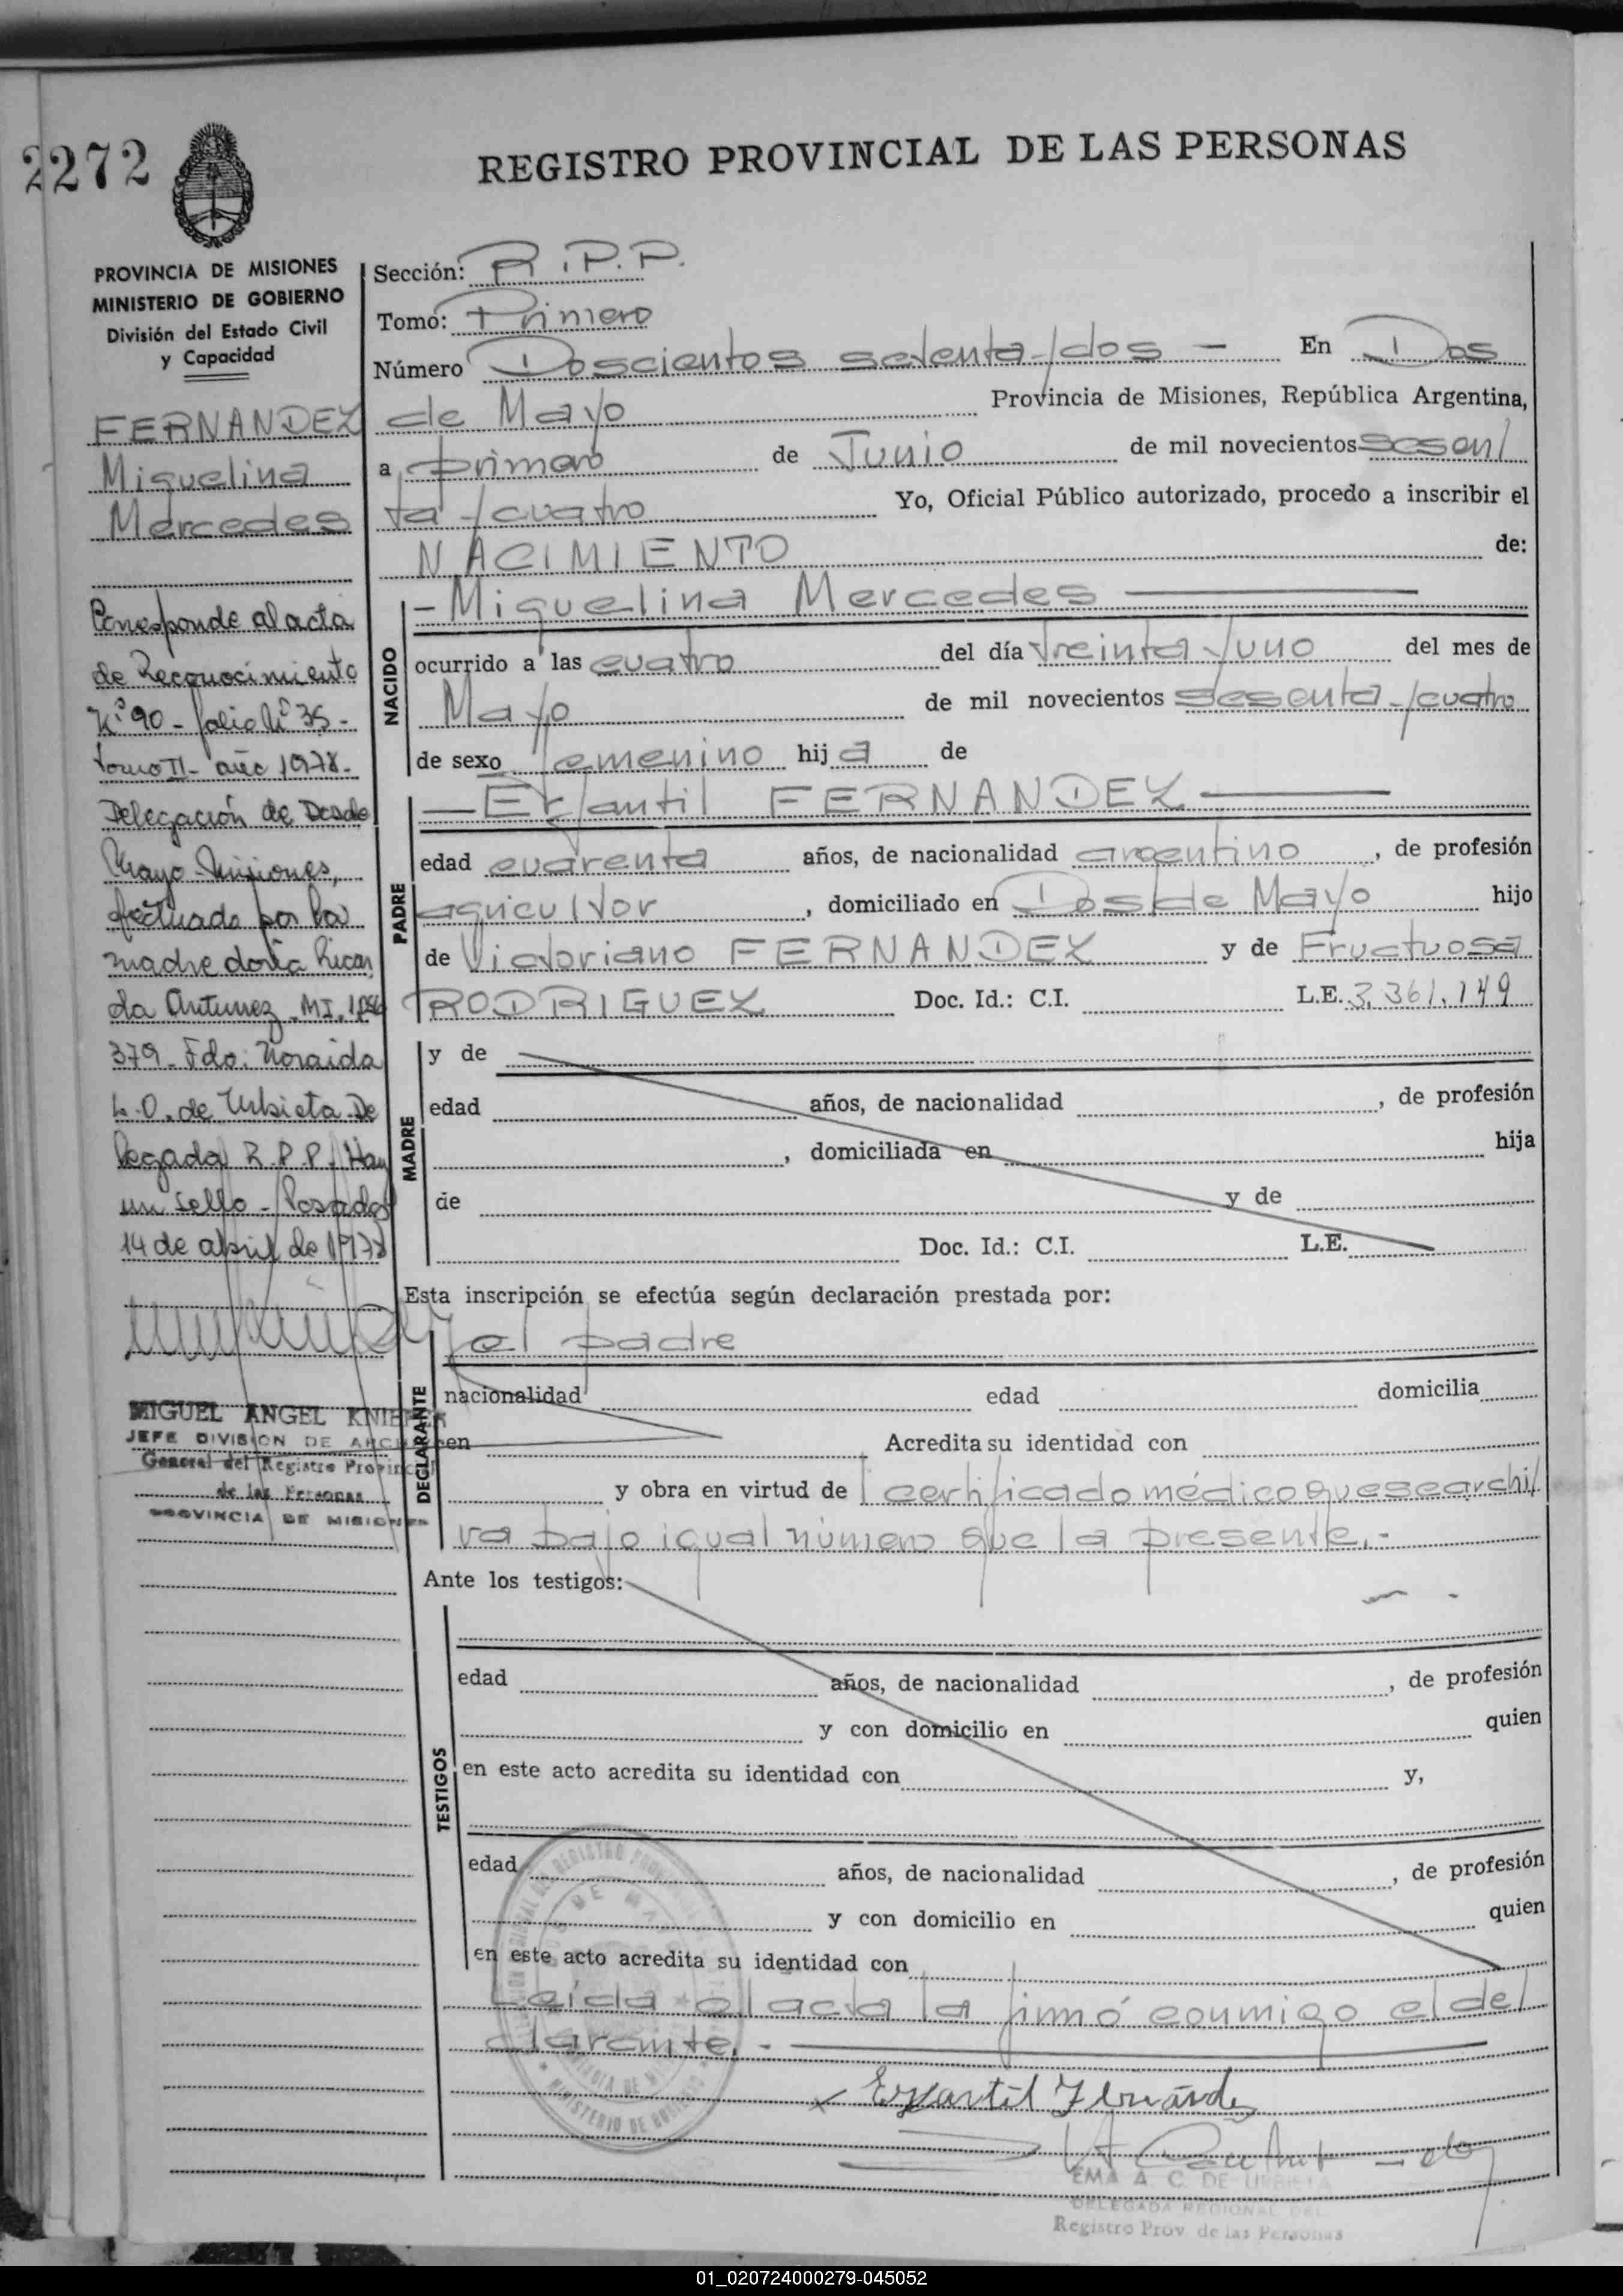 2272
REGISTRO PROVINCIAL DE LAS PERSONAS
PROVINCIA DE MISIONES
MINISTERIO DE GOBIERNO
División del Estado Civil
y Capacidad
FERNANDEZ
Miguelina
Mercedes
Corresponde al acta
de Reconocimiento
Nº 90 - folio Nº 35 -
tomo II - año 1978 -
Delegación de Dosde
Mayo Misiones,
efectuado por la
madre doña Ricar
da Antunez. MI. 1.
379 - Fdo: Noraida
L. O. de Urbieta De
legada R.P.P. Hay
un sello - Posadas
14 de abril de 1978
MIGUEL ANGEL
JEFE DIVISION DE
General del Registro Provincial
de las Personas
PROVINCIA DE MISIONES
Sección: R.P.P.
Tomo: Primero
Número Doscientos setenta y dos - En Dos
de Mayo Provincia de Misiones, República Argentina,
a primero de Junio de mil novecientos sesen/
ta y cuatro Yo, Oficial Público autorizado, procedo a inscribir el
NACIMIENTO de:
NACIDO
- Miguelina Mercedes
ocurrido a las cuatro del día treinta y uno del mes de
Mayo de mil novecientos sesenta y cuatro
de sexo femenino hija de
PADRE
Erfantil FERNANDEZ
edad cuarenta años, de nacionalidad argentino, de profesión
agricultor, domiciliado en Dos de Mayo hijo
de Victoriano FERNANDEZ y de Fructuosa
RODRIGUEZ Doc. Id.: C.I. L.E. 3.361.149
MADRE
y de
edad años, de nacionalidad , de profesión
, domiciliada en hija
de y de
Doc. Id.: C.I. L.E.
Esta inscripción se efectúa según declaración prestada por:
DECLARANTE
el padre
nacionalidad edad domicilia
en Acredita su identidad con
y obra en virtud de certificado médico que se archi/
va bajo igual número que la presente.-
Ante los testigos:
TESTIGOS
edad años, de nacionalidad , de profesión
y con domicilio en quien
en este acto acredita su identidad con y,
edad años, de nacionalidad , de profesión
y con domicilio en quien
en este acto acredita su identidad con
Leída el acta la firmó conmigo el de/
clarante. -
x Erfantil Fernández
EMA A. C. DE URBIETA
DELEGADA REGIONAL DEL
Registro Prov. de las Personas
01_020724000279-045052